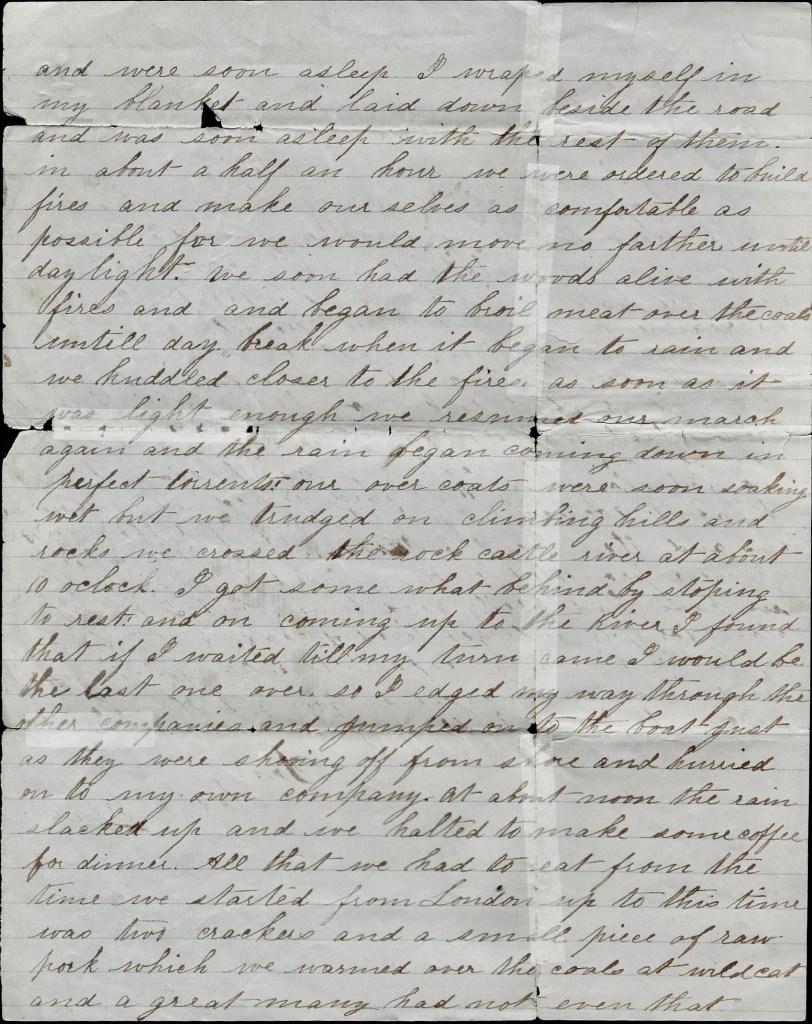 and were soon asleep. I wraped myself in
my blanket and laid down beside the road
and was soon asleep with the rest of them.
in about a half an hour we were ordered to build
fires and make our selves as comfortable as
possible for we would move no farther until
day light. we soon had the woods alive with
fires and and began to broil meat over the coals
untill day break when it began to rain and
we huddled closer to the fires. as soon as it
was light enough we resumed our march
again and the rain began coming down in
perfect torrents. our over coats were soon soaking
wet but we trudged on climbing hills and
rocks we crossed the rock castle river at about
10 oclock. I got some what behind by stoping
to rest. and on coming up to the River I found
that if I waited till my turn came I would be
the last one over. so I edged my way through the
other companies and jumped on to the boat just
as they were shoving off from shore and hurried
on to my own company. at about noon the rain
slacked up and we halted to make some coffee
for dinner. All that we had to eat from the
time we started from London up to this time
was two crackers and a small piece of raw
pork which we warmed over the coals at wild cat
and a great many had not even that